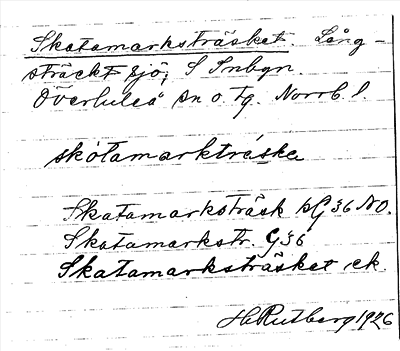 Skatamarksträsket. Lång-
sträckt sjö; S Inbgn.
Överluleå sn o. tg. Norrb. l.
skòtamarkträska
Skatamarksträsk bG36 NO.
Skatamarkstr. G36
Skatamarksträsket ek.
H. Rutberg 1926